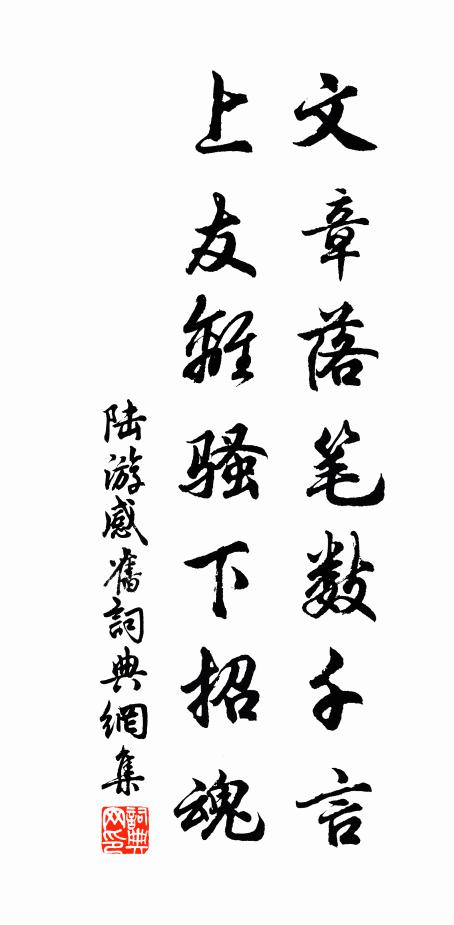 文章落笔数千言
上友離骚下招魂
陆游感舊詞典網集
詞典网印